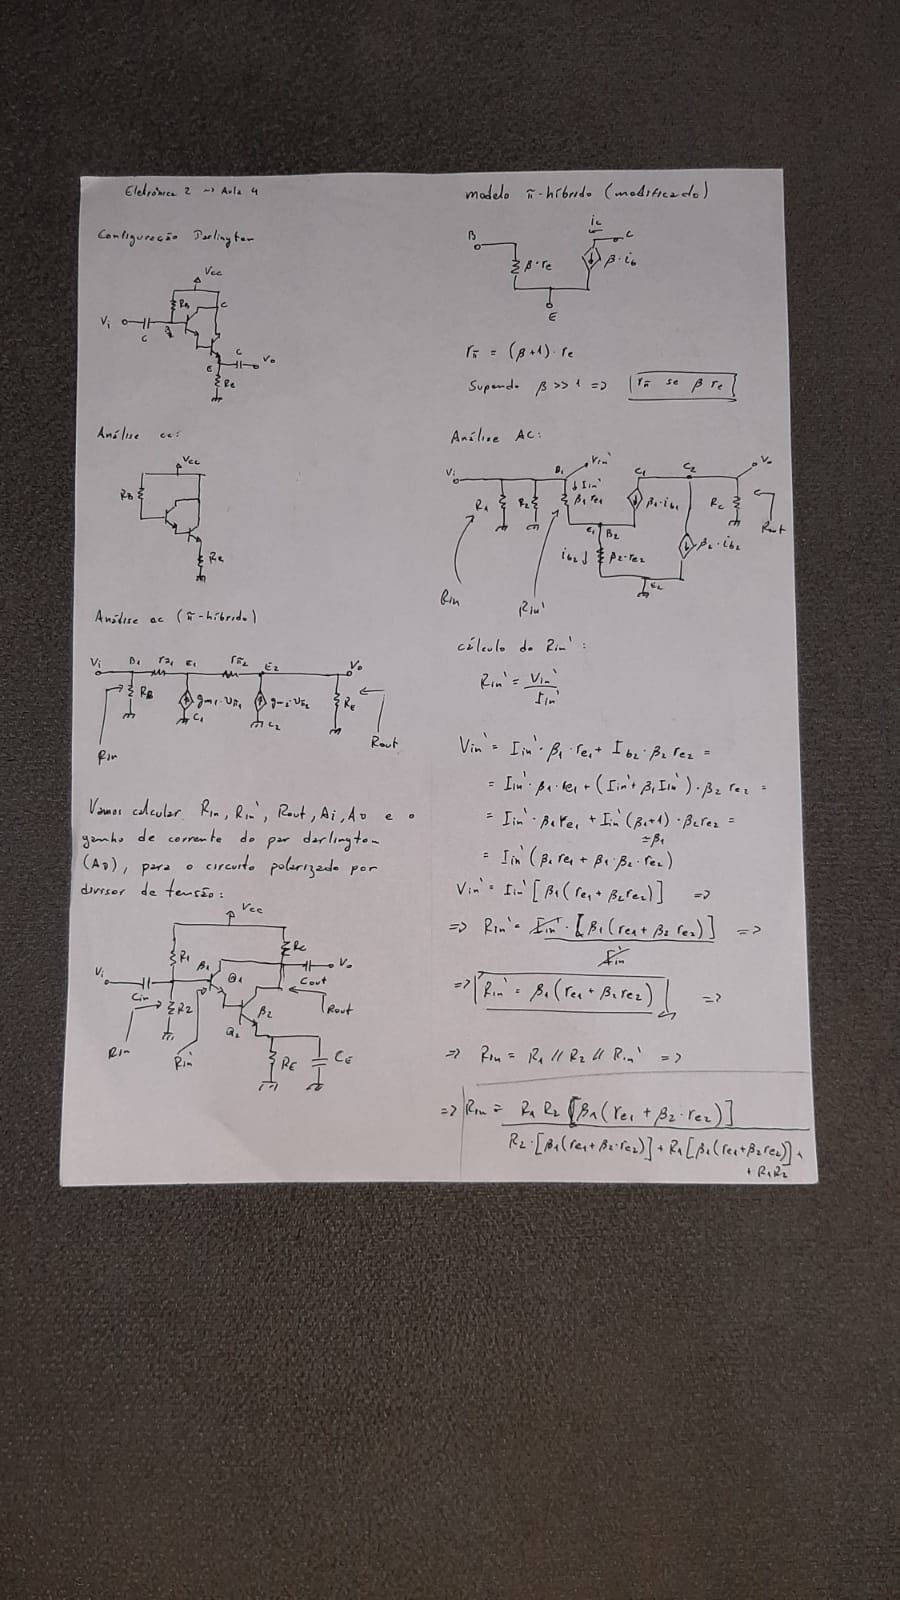 Eletrônica 2 → Aula 4
Configuração Darlington
Vcc
RB
C
Vi
C
B
E
C
Vo
RE
Análise cc:
Vcc
RB
RE
Análise ac (π-híbrido)
Vi
B1
rπ1
E1
rπ2
E2
Vo
RB
gm1·vπ1
gm2·vπ2
RE
C1
C2
Rin
Rout
Vamos calcular Rin, Rin', Rout, Ai, Av e o
ganho de corrente do par darlington
(AD), para o circuito polarizado por
divisor de tensão:
Vcc
R1
RC
Vi
β1
Q1
Vo
Cin
Cout
R2
β2
Rout
Q2
Rin
Rin'
RE
CE
modelo π-híbrido (modificado)
B
ic
C
β·re
β·ib
E
rπ = (β+1)·re
Supondo β >> 1 => rπ se β re
Análise AC:
Vi
B1
Vin'
C1
C2
Vo
↓ Iin'
R1
R2
β1 re1
β1·ib1
RC
Rout
E1
B2
ib2↓
β2·re2
β2·ib2
E2
Rin
Rin'
cálculo do Rin':
Rin' = Vin'
Iin'
Vin' = Iin'·β1·re1 + Ib2·β2 re2 =
= Iin'·β1·re1 + (Iin' + β1 Iin')·β2 re2 =
= Iin'·β1 re1 + Iin'(β1+1)·β2 re2 =
≈β1
= Iin'(β1 re1 + β1·β2·re2)
Vin' = Iin'[β1(re1 + β2 re2)] =>
=> Rin' = Iin'·[β1(re1 + β2 re2)] =>
Iin'
=> Rin' = β1(re1 + β2 re2) =>
=> Rin = R1 // R2 // Rin' =>
=> Rin = R1 R2 [β1(re1 + β2·re2)]
R2·[β1(re1+β2·re2)] + R1[β1(re1+β2re2)] +
+ R1R2